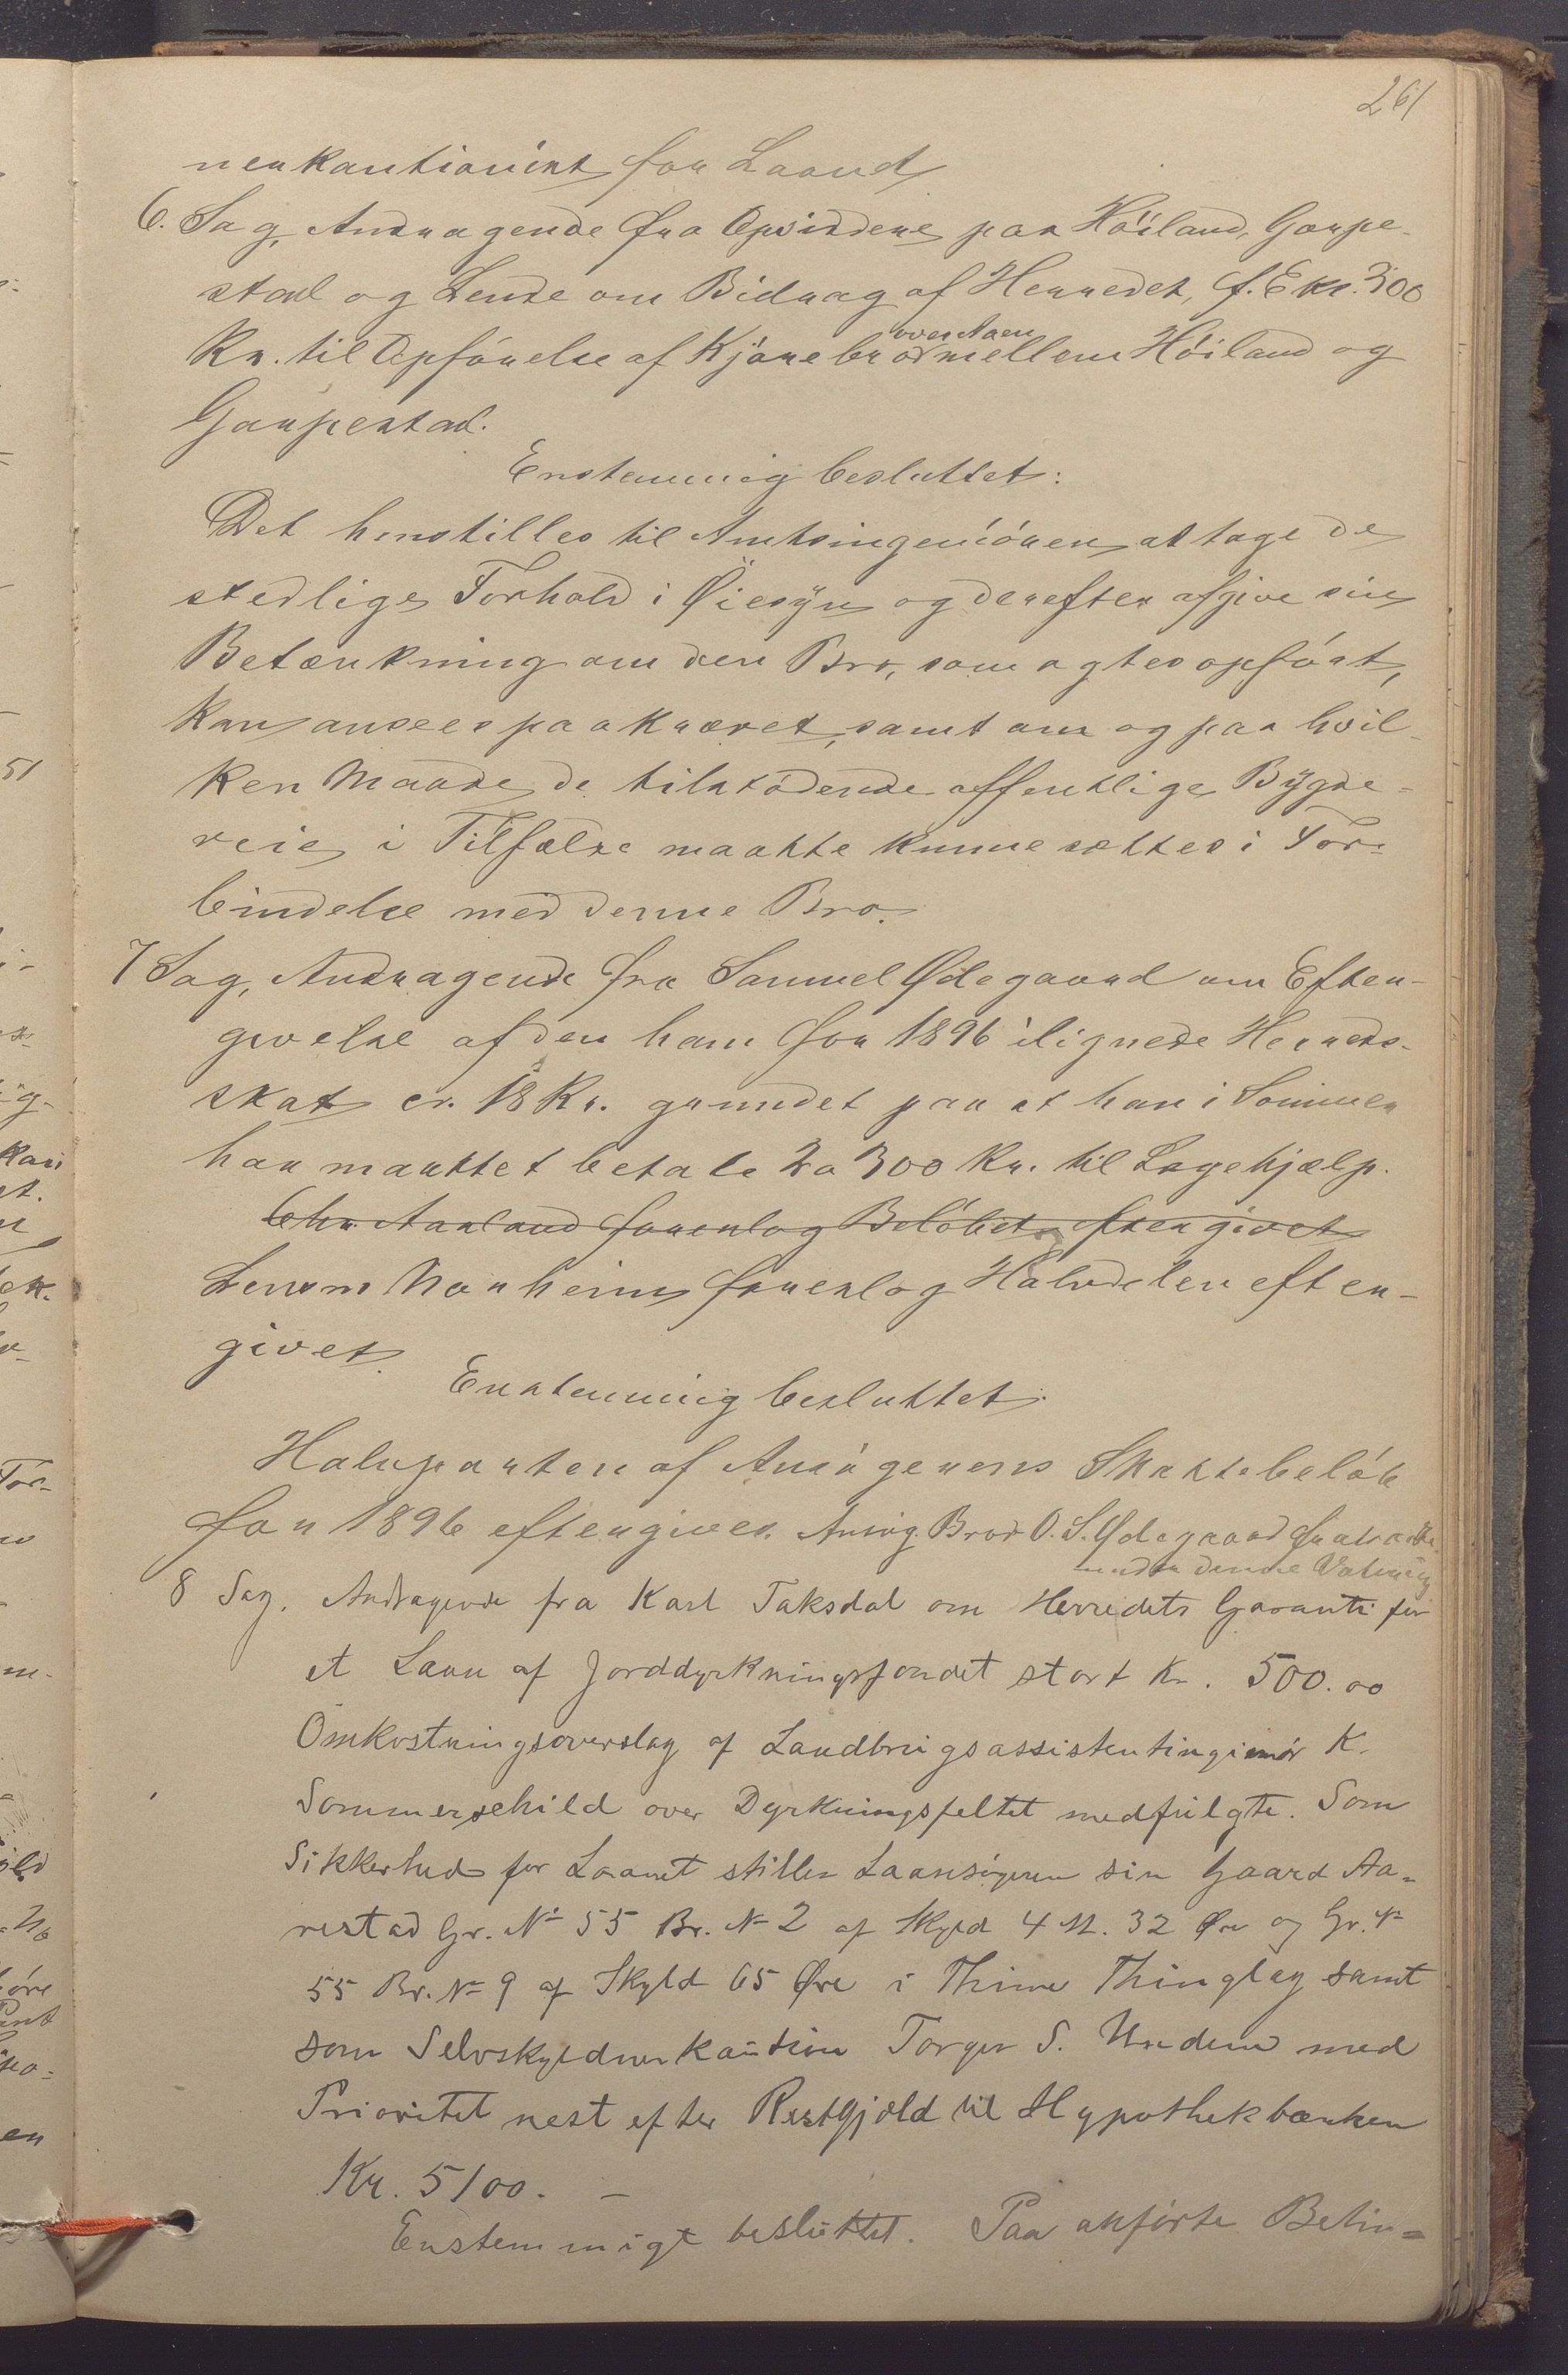 261
nerkautionist for Laanet
6. Sag, Andragende fra Opsidderne paa Höiland, Gaupe-
stad og Lende om Bidrag af Herredet, f. Ex. 300
Kr. til Opförelse af Kjörebro over Aaen mellem Höiland og
Gaupestad.
Enstemmig besluttet:
Det henstilles til Amtsingeniören at tage de
stedlige Forhold i Øiesyn og derefter afgive sin
Betænkning om den Bro, som agtes opfört,
kan ansees paakrævet, samt om og paa hvil-
ken Maade de tilstödende offentlige Bygde-
veie i Tilfælde maatte kunne sættes i For-
bindelse med denne Bro.
7 Sag, Andragende fra Samuel Ødegaard om Efter-
givelse af den ham for 1896 ilignede Herreds-
skat cr. 18 Kr. grundet paa at han i Sommer
har maattet betale 2 a 300 Kr. til Lægehjælp.
Chr. Aarland foreslog Belöbet eftergivet
Lensm Narheim foreslog Halvdelen efter-
givet.
Enstemmig besluttet:
Halvparten af Ansögerens Skattebelöb
for 1896 eftergives. Ansög. Bror O. S. Ødegaard fratraadte
under denne Votering
8 Sag. Andragende fra Karl Taksdal om Herredets Garanti for
et Laan af Jorddyrkningsfondet stort Kr. 500.00
Omkostningsoverslag af Landbrugsassistentingeniör K.
Sommerschild over Dyrkningsfeltet medfulgte. Som
Sikkerhed for Laanet stiller Laansögeren sin Gaard Aa-
restad Gr. No 55 Br. No 2 af Skyld 4 M. 32 Øre og Gr. No
55 Br. No 9 af Skyld 65 Øre i Thime Thinglag samt
som Selvskyldnerkaution Torger S. Undem med
Prioritet nest efter Restgjæld til Hypothekbanken
Kr. 5100. —
Enstemmigt besluttet. Paa anförte Betin-